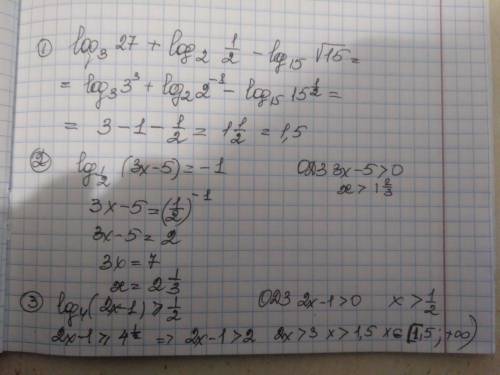 ① log₃ 27 + log₂ 1/2 - log₁₅ √15 =
= log₃ 3³ + log₂ 2⁻¹ - log₁₅ 15^(1/2) =
= 3 - 1 - 1/2 = 1 1/2 = 1,5
② log_(1/2) (3x-5) = -1 ОДЗ 3x-5>0
x > 1 2/3
3x-5 = (1/2)⁻¹
3x-5 = 2
3x = 7
x = 2 1/3
③ log₄(2x-1) ≥ 1/2 ОДЗ 2x-1>0 x > 1/2
2x-1 ≥ 4^(1/2) => 2x-1>2 2x>3 x>1,5 x∈[1,5; +∞)